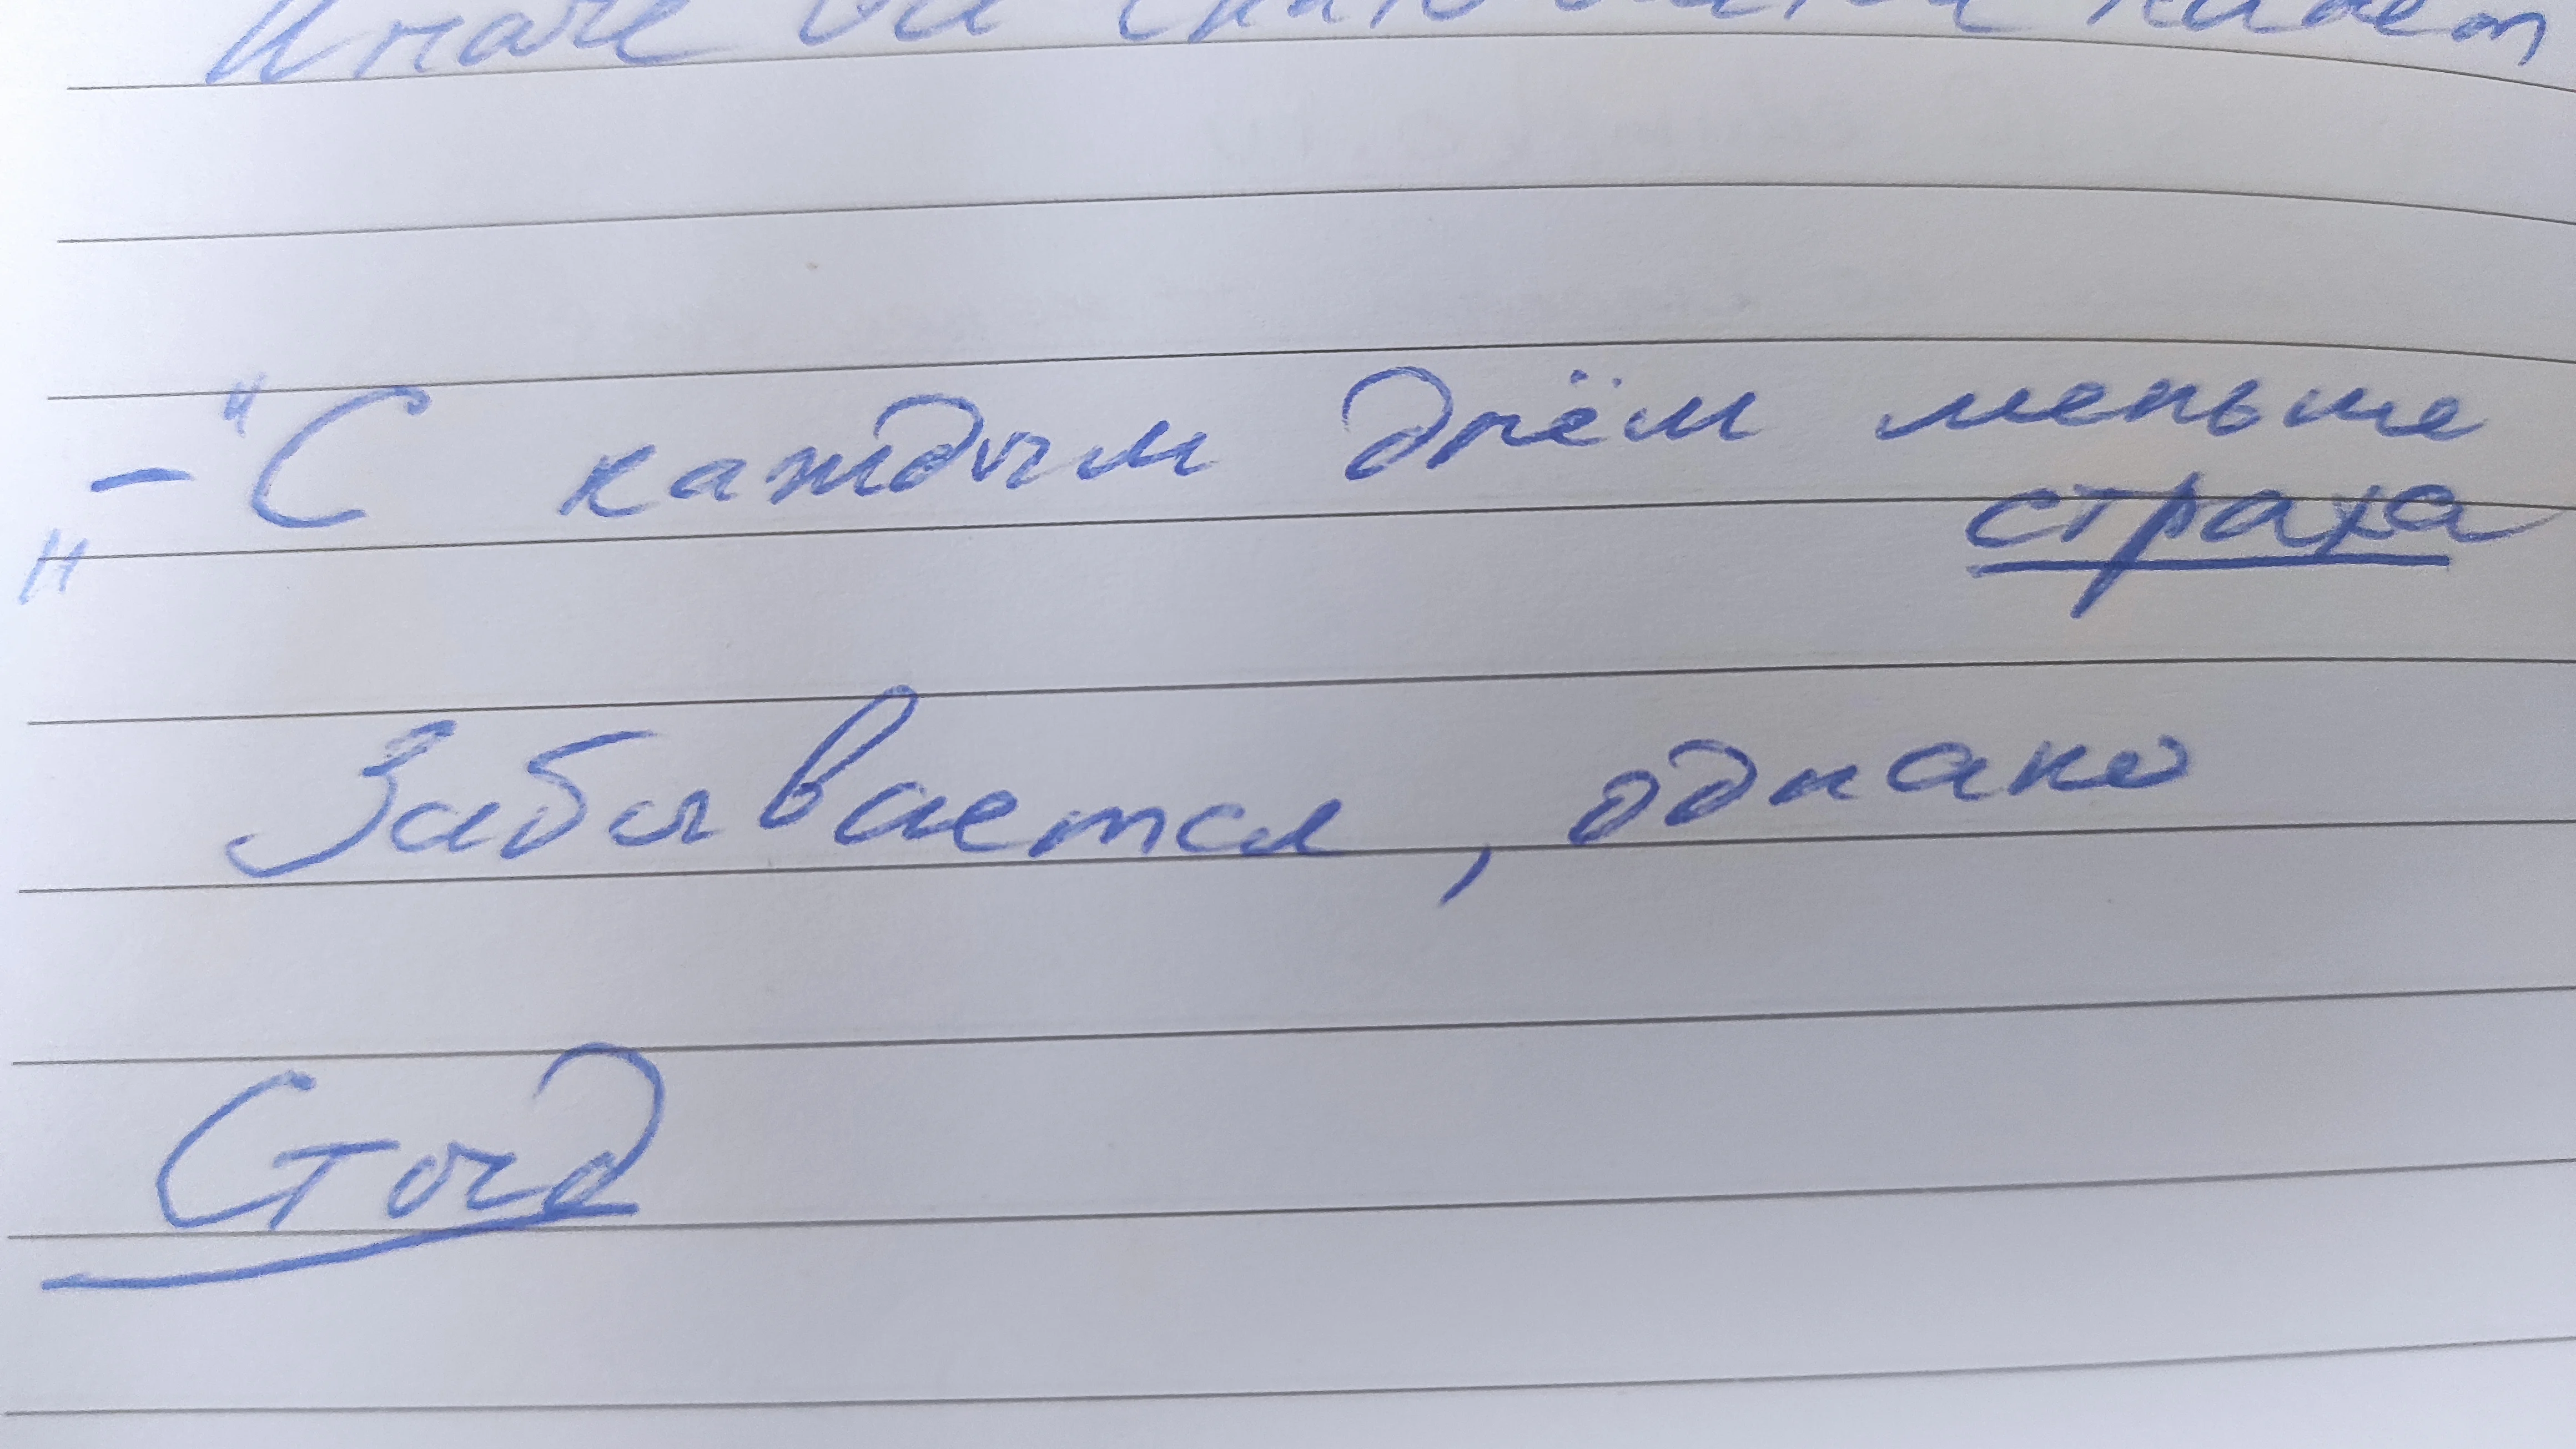 Иначе
- "С каждым днём меньше
страха
"
Забывается, однако
Стыд